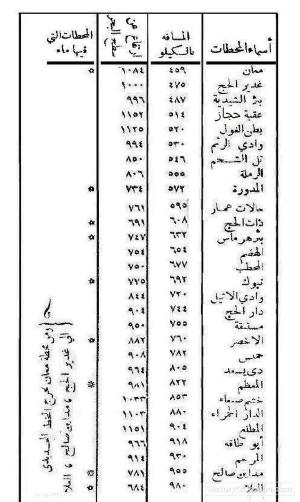 أسماء المحطات | المسافة بالكيلو | ارتفاع عن سطح البحر | المحطات التي فيها ماء
معان | ٤٥٩ | ١٠٨٤ | *
غدير الحج | ٤٧٥ | ١٠٠٠
بئر الشيدية | ٤٨٧ | ٩٩٦
عقبة حجاز | ٥١٤ | ١١٥٢
بطن الغول | ٥٢٠ | ١١٢٥
وادي الرتم | ٥٣٠ | ٩٩٤
تل الشحم | ٥٤٦ | ٨٥٠
الرملة | ٥٥٥ | ٨٠٦
المدورة | ٥٧٢ | ٧٣٤ | *
حالات عمار | ٥٩٥ | ٧٦١
ذات الحج | ٦٠٨ | ٦٩١ | *
بئر هرماس | ٦٣٢ | ٧٤٧ | *
الهضم | ٦٥٤ | ٧٥٤
المحطب | ٦٧٧ | ٧٥٠
تبوك | ٦٩٢ | ٧٧٥ | *
وادي الاثيل | ٧٢٠ | ٨٤٤
دار الحج | ٧٤٤ | ٩٠٤
مستبقة | ٧٥٥ | ٩٥٠
الاخضر | ٧٦٠ | ٨٨٢ | *
خميس | ٧٨٢ | ٩٠٨
دي سعد | ٨٠٥ | ٩٦٤
المعظم | ٨٢٢ | ٩٨١ | *
خشم صنعاء | ٨٥٣ | ١٠٣٣
الدار الحمراء | ٨٨٠ | ١١٠٣
المطلع | ٩٠٤ | ١١٥١
أبو طاقه | ٩١٨ | ٩٦٦
المرحم | ٩٣٠ | ٩١٤
مداين صالح | ٩٥٥ | ٧٨١ | *
العلا | ٩٨٠ | ٦٨٤ | *
ومن محطة معان يخرج الخط الحديدي
الى غدير الحج ، مداين صالح ، العلا